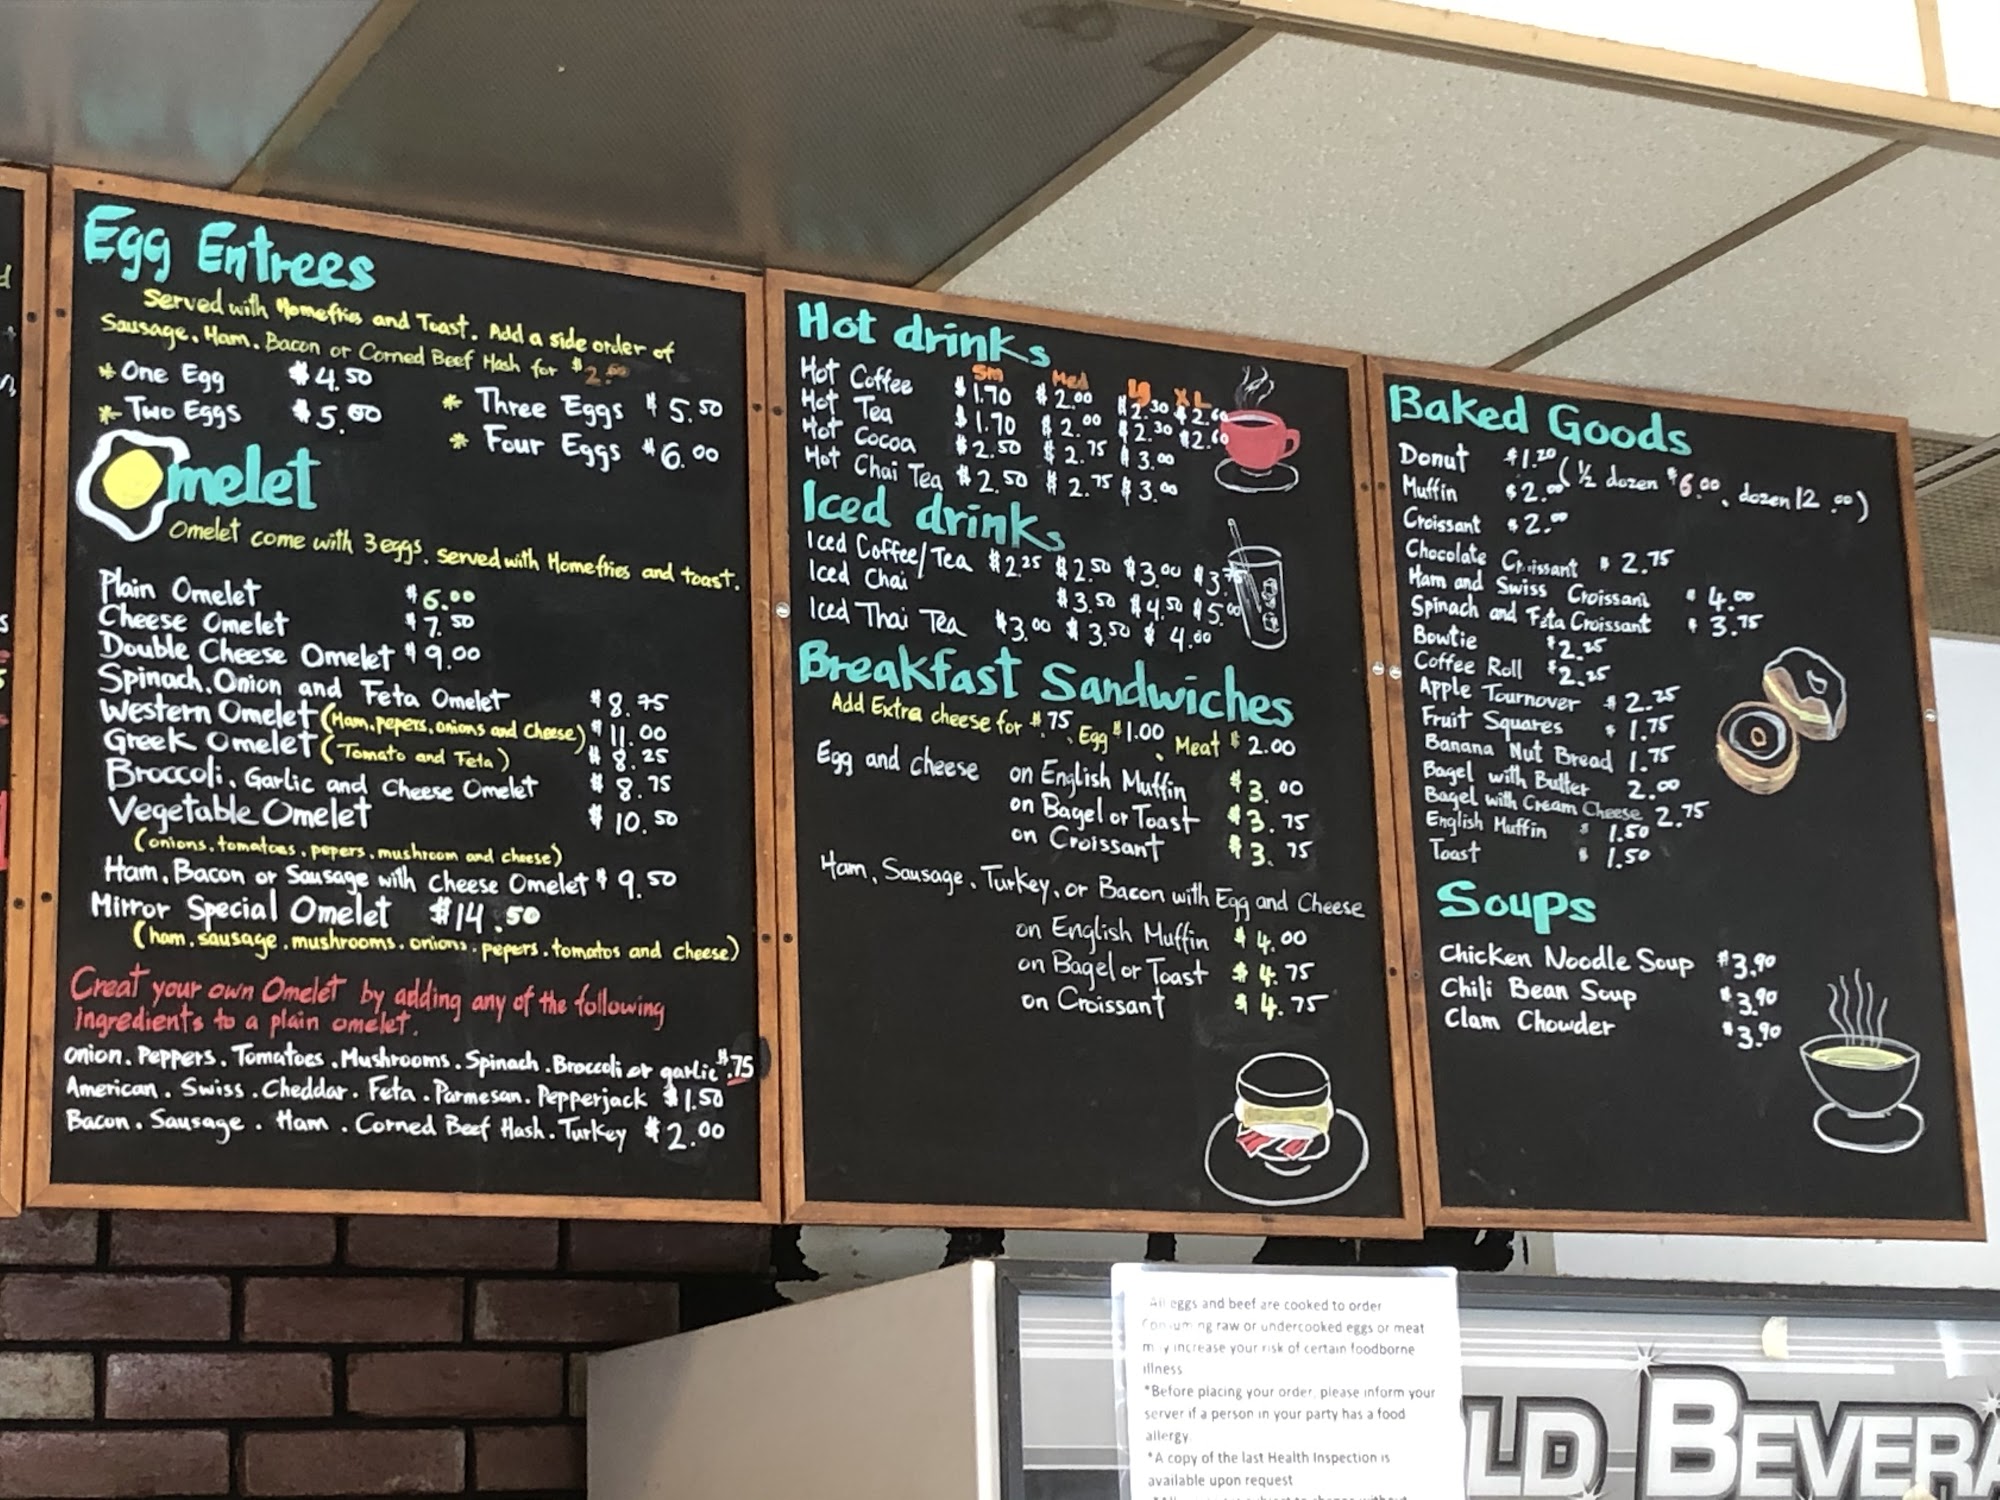 Egg Entrees
Served with Homefries and Toast. Add a side order of
Sausage, Ham, Bacon or Corned Beef Hash for $2.00
* One Egg $4.50
* Two Eggs $5.00
* Three Eggs $5.50
* Four Eggs $6.00
Omelet
Omelet come with 3 eggs, served with Homefries and toast.
Plain Omelet $6.00
Cheese Omelet $7.50
Double Cheese Omelet $9.00
Spinach, Onion and Feta Omelet $8.75
Western Omelet (Ham, pepers, onions and cheese) $11.00
Greek Omelet (Tomato and Feta) $8.25
Broccoli, Garlic and Cheese Omelet $8.75
Vegetable Omelet $10.50
(onions, tomatoes, pepers, mushroom and cheese)
Ham, Bacon or Sausage with cheese Omelet $9.50
Mirror Special Omelet $14.50
(ham, sausage, mushrooms, onions, pepers, tomatos and cheese)
Creat your own Omelet by adding any of the following
ingredients to a plain omelet.
Onion. Peppers. Tomatoes. Mushrooms. Spinach. Broccoli or garlic $.75
American. Swiss. Cheddar. Feta. Parmesan. Pepperjack $1.50
Bacon. Sausage. Ham. Corned Beef Hash. Turkey $2.00
Hot drinks
Sm Med Lg XL
Hot Coffee $1.70 $2.00 $2.30 $2.60
Hot Tea $1.70 $2.00 $2.30 $2.60
Hot Cocoa $2.50 $2.75 $3.00
Hot Chai Tea $2.50 $2.75 $3.00
Iced drinks
Iced Coffee/Tea $2.25 $2.50 $3.00 $3.75
Iced Chai $3.50 $4.50 $5.00
Iced Thai Tea $3.00 $3.50 $4.00
Breakfast Sandwiches
Add Extra cheese for $.75, Egg $1.00, Meat $2.00
Egg and cheese on English Muffin $3.00
on Bagel or Toast $3.75
on Croissant $3.75
Ham, Sausage, Turkey, or Bacon with Egg and Cheese
on English Muffin $4.00
on Bagel or Toast $4.75
on Croissant $4.75
Baked Goods
Donut $1.20 (½ dozen $6.00, dozen 12.00)
Muffin $2.00
Croissant $2.00
Chocolate Croissant $2.75
Ham and Swiss Croissant $4.00
Spinach and Feta Croissant $3.75
Bowtie $2.25
Coffee Roll $2.25
Apple Tournover $2.25
Fruit Squares $1.75
Banana Nut Bread 1.75
Bagel with Butter 2.00
Bagel with Cream Cheese 2.75
English Muffin $1.50
Toast $1.50
Soups
Chicken Noodle Soup $3.90
Chili Bean Soup $3.90
Clam Chowder $3.90
All eggs and beef are cooked to order
Consuming raw or undercooked eggs or meat
may increase your risk of certain foodborne
illness
*Before placing your order, please inform your
server if a person in your party has a food
allergy.
*A copy of the last Health Inspection is
available upon request
LD BEVERA